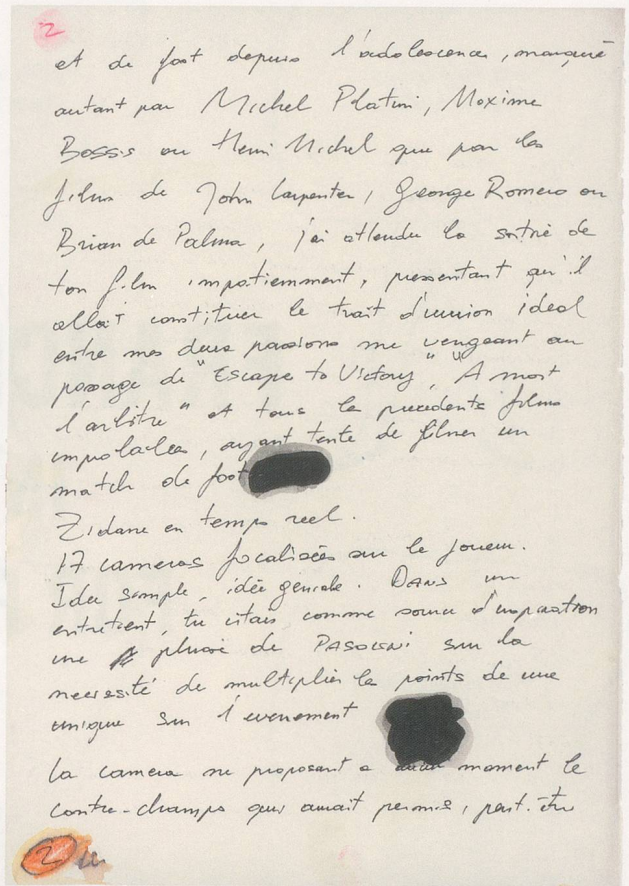 2
et de foot depuis l'adolescence, marqué
autant par Michel Platini, Maxime
Bossis ou Henri Michel que par les
films de John Carpenter, George Romero ou
Brian de Palma, j'ai attendu la sortie de
ton film impatiemment, pressentant qu'il
allait constituer le trait d'union ideal
entre mes deux passions me vengeant au
passage de "Escape to Victory", "A mort
l'arbitre" et tous les precedents films
implacables, ayant tenté de filmer un
match de foot
Zidane en temps reel.
17 cameras focalisées sur le joueur.
Idee simple, idée géniale. DANS un
entretient, tu citais comme source d'inspiration
une phrase de PASOLINI sur la
necessité de multiplier les points de vue
unique sur l'evenement
La camera ne proposant a aucun moment le
contre-champs qui aurait permis, peut-être
2